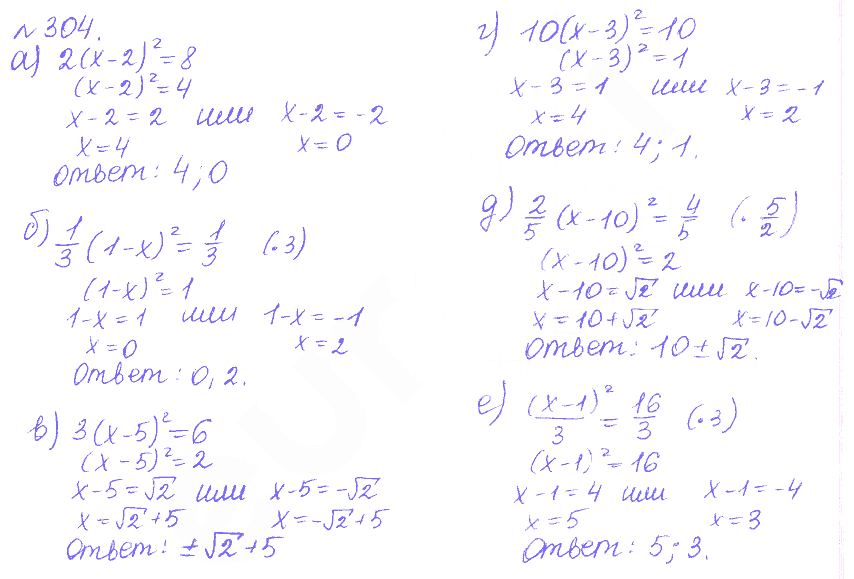 № 304.
а) 2(x-2)²=8
(x-2)²=4
x-2=2 или x-2=-2
x=4 x=0
Ответ: 4; 0
б) 1/3 (1-x)² = 1/3 (·3)
(1-x)²=1
1-x=1 или 1-x=-1
x=0 x=2
Ответ: 0, 2.
в) 3(x-5)²=6
(x-5)²=2
x-5=√2 или x-5=-√2
x=√2+5 x=-√2+5
Ответ: ±√2+5
г) 10(x-3)²=10
(x-3)²=1
x-3=1 или x-3=-1
x=4 x=2
Ответ: 4; 1.
д) 2/5 (x-10)² = 4/5 (· 5/2)
(x-10)²=2
x-10=√2 или x-10=-√2
x=10+√2 x=10-√2
Ответ: 10±√2.
е) (x-1)²/3 = 16/3 (·3)
(x-1)²=16
x-1=4 или x-1=-4
x=5 x=3
Ответ: 5; 3.